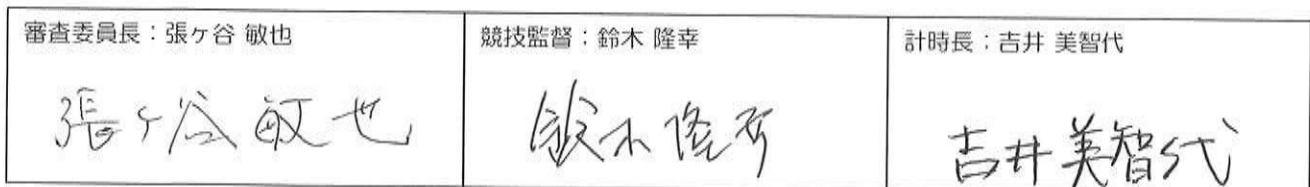 審査委員長：張ヶ谷 敏也
競技監督：鈴木 隆幸
計時長：吉井 美智代
張ヶ谷 敏也
鈴木 隆幸
吉井 美智代